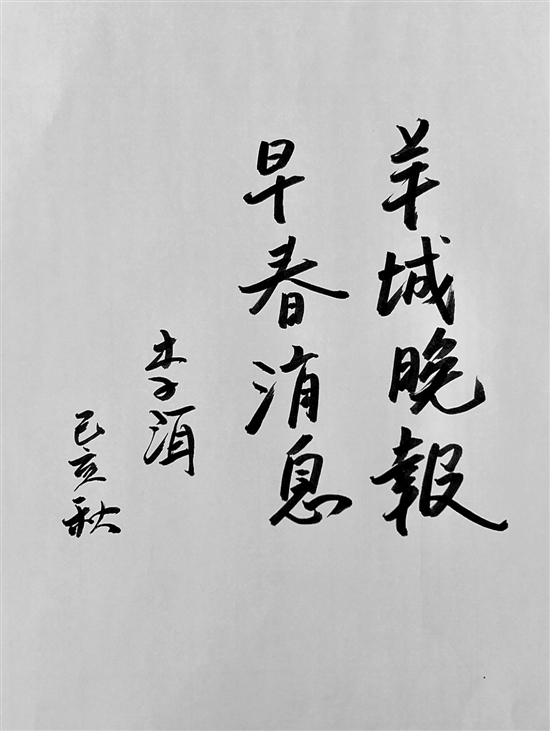 羊城晚報
早春消息
李洱
己亥秋